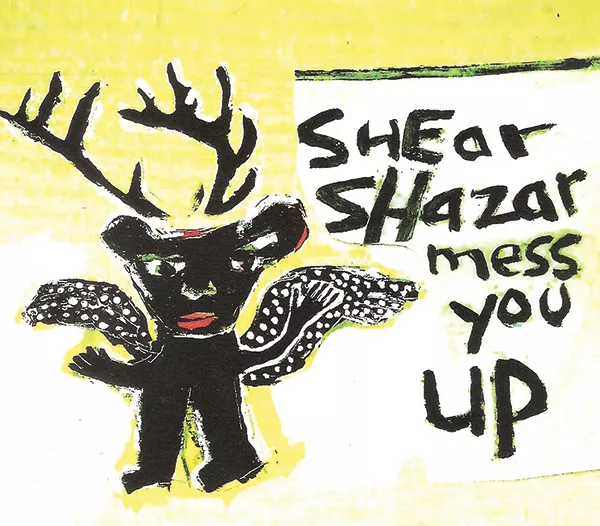 SHEar
SHazar
mess
you
UP